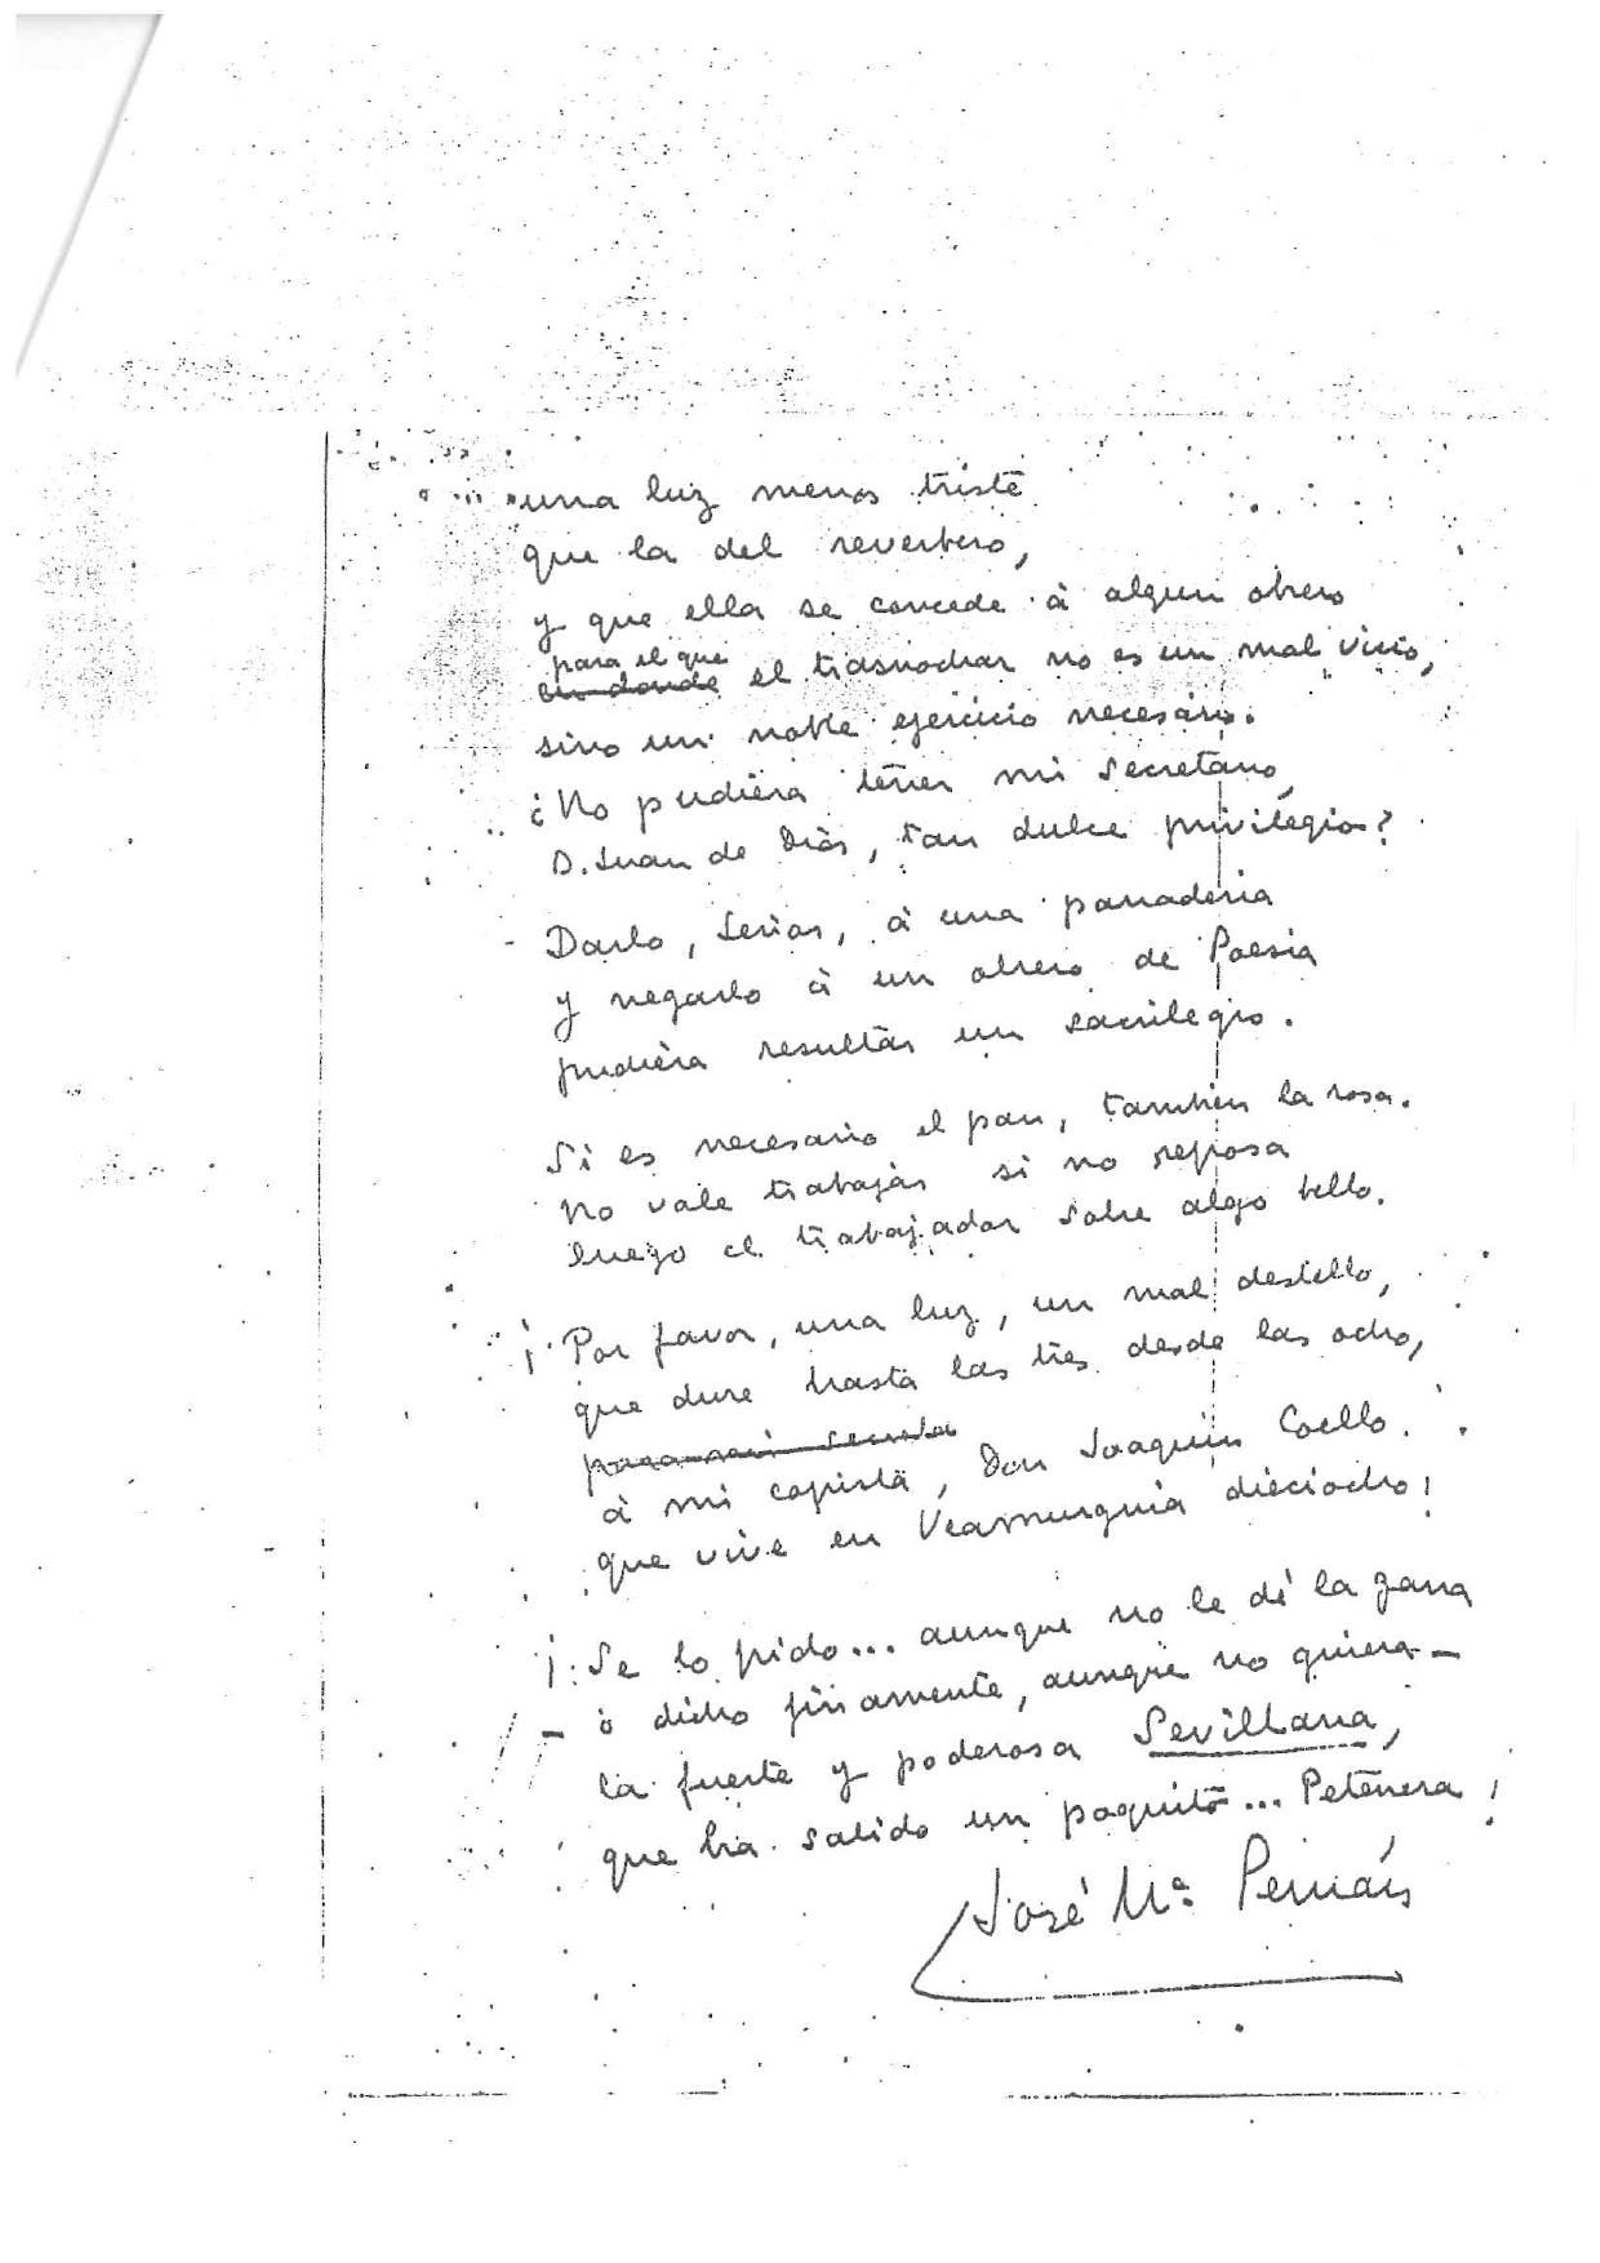 una luz menos triste
que la del reverbero,
y que ella se concede à algun obrero
para el que
en donde el trasnochar no es un mal vicio,
sino un noble ejercicio necesario.
¿No pudiera tener mi secretario,
D. Juan de Dios, tan dulce privilegio?
Darlo, Señor, à una panaderia
y negarlo à un obrero de Poesia
pudiera resultar un sacrilegio.
Si es necesario el pan, tambien la rosa.
No vale trabajar si no reposa
luego el trabajador sobre algo bello.
¡Por favor, una luz, un mal destello,
que dure hasta las tres desde las ocho,
para mi
à mi copista, Don Joaquin Coello.
que vive en Veamurguia dieciocho!
¡Se lo pido... aunque no le dé la gana
- ò dicho finamente, aunque no quiera -
la fuerte y poderosa Sevillana,
que ha salido un poquito... Petenera!
José Mª Pemán